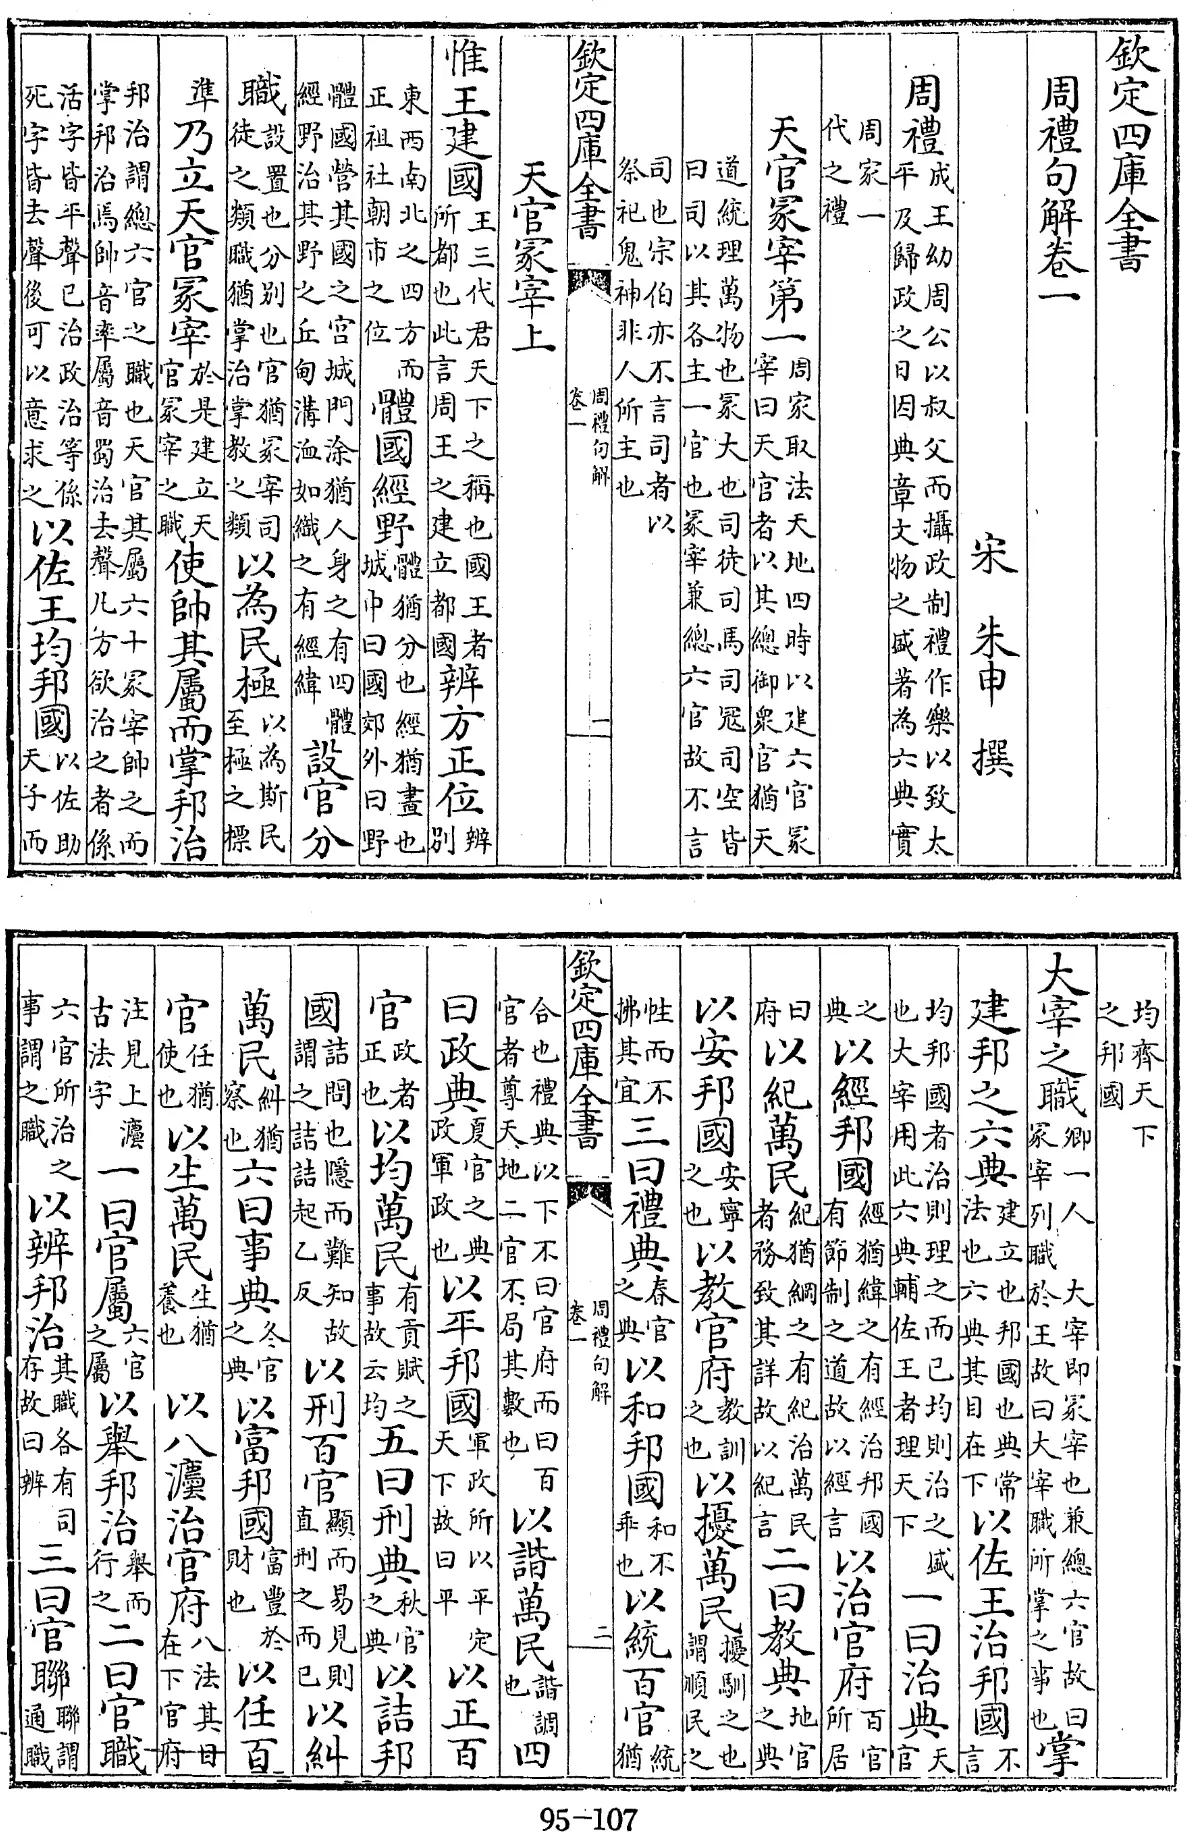 欽定四庫全書
周禮句解卷一
宋 朱申 撰
周禮成王幼周公以叔父而攝政制禮作樂以致太平及歸政之日因典章文物之盛著為六典實
周家一代之禮
天官冢宰第一周家取法天地四時以建六官冢宰曰天官者以其總御衆官猶天
道統理萬物也冢大也司徒司馬司冦司空皆曰司以其各主一官也冢宰兼總六官故不言
司也宗伯亦不言司者以祭祀鬼神非人所主也
欽定四庫全書 周禮句解 卷一 一
天官冢宰上
惟王建國王三代君天下之稱也國王者所都也此言周王之建立都國辨方正位辨别
東西南北之四方而正祖社朝市之位體國經野體猶分也經猶畫也城中曰國郊外曰野
體國營其國之宫城門涂猶人身之有四體經野治其野之丘甸溝洫如織之有經緯設官分
職設置也分别也官猶冢宰司徒之類職猶掌治掌教之類以為民極以為斯民至極之標
準乃立天官冢宰於是建立天官冢宰之職使帥其屬而掌邦治
邦治謂總六官之職也天官其屬六十冢宰帥之而掌邦治焉帥音率屬音蜀治去聲凡方欲治之者係
活字皆平聲已治政治等係死字皆去聲後可以意求之以佐王均邦國以佐助天子而
均齊天下之邦國
大宰之職卿一人大宰即冢宰也兼總六官故曰冢宰列職於王故曰大宰職所掌之事也掌
建邦之六典建立也邦國也典常法也六典其目在下以佐王治邦國不言
均邦國者治則理之而已均則治之盛也大宰用此六典輔佐王者理天下一曰治典天官
之典以經邦國經猶緯之有經治邦國有節制之道故以經言以治官府百官所居
曰府以紀萬民紀猶綱之有紀治萬民者務致其詳故以紀言二曰教典地官之典
以安邦國安寧之也以教官府教訓之也以擾萬民擾馴之也謂順民之
性而不拂其宜三曰禮典春官之典以和邦國和不乖也以統百官統猶
欽定四庫全書 周禮句解 卷一 二
合也禮典以下不曰官府而曰百官者尊天地二官不局其數也以諧萬民諧調也四
曰政典夏官之典政軍政也以平邦國軍政所以平定天下故曰平以正百
官政者正也以均萬民有貢賦之事故云均五曰刑典秋官之典以詰邦
國詰問也隱而難知故謂之詰詰起乙反以刑百官顯而易見則直刑之而已以糾
萬民糾猶察也六曰事典冬官之典以富邦國富豐於財也以任百
官任猶使也以生萬民生猶養也以八灋治官府八法其目在下官府
注見上灋古法字一曰官屬六官之屬以舉邦治舉而行之二曰官職
六官所治之事謂之職以辨邦治其職各有司存故曰辨三曰官聯聯謂通職
95-107